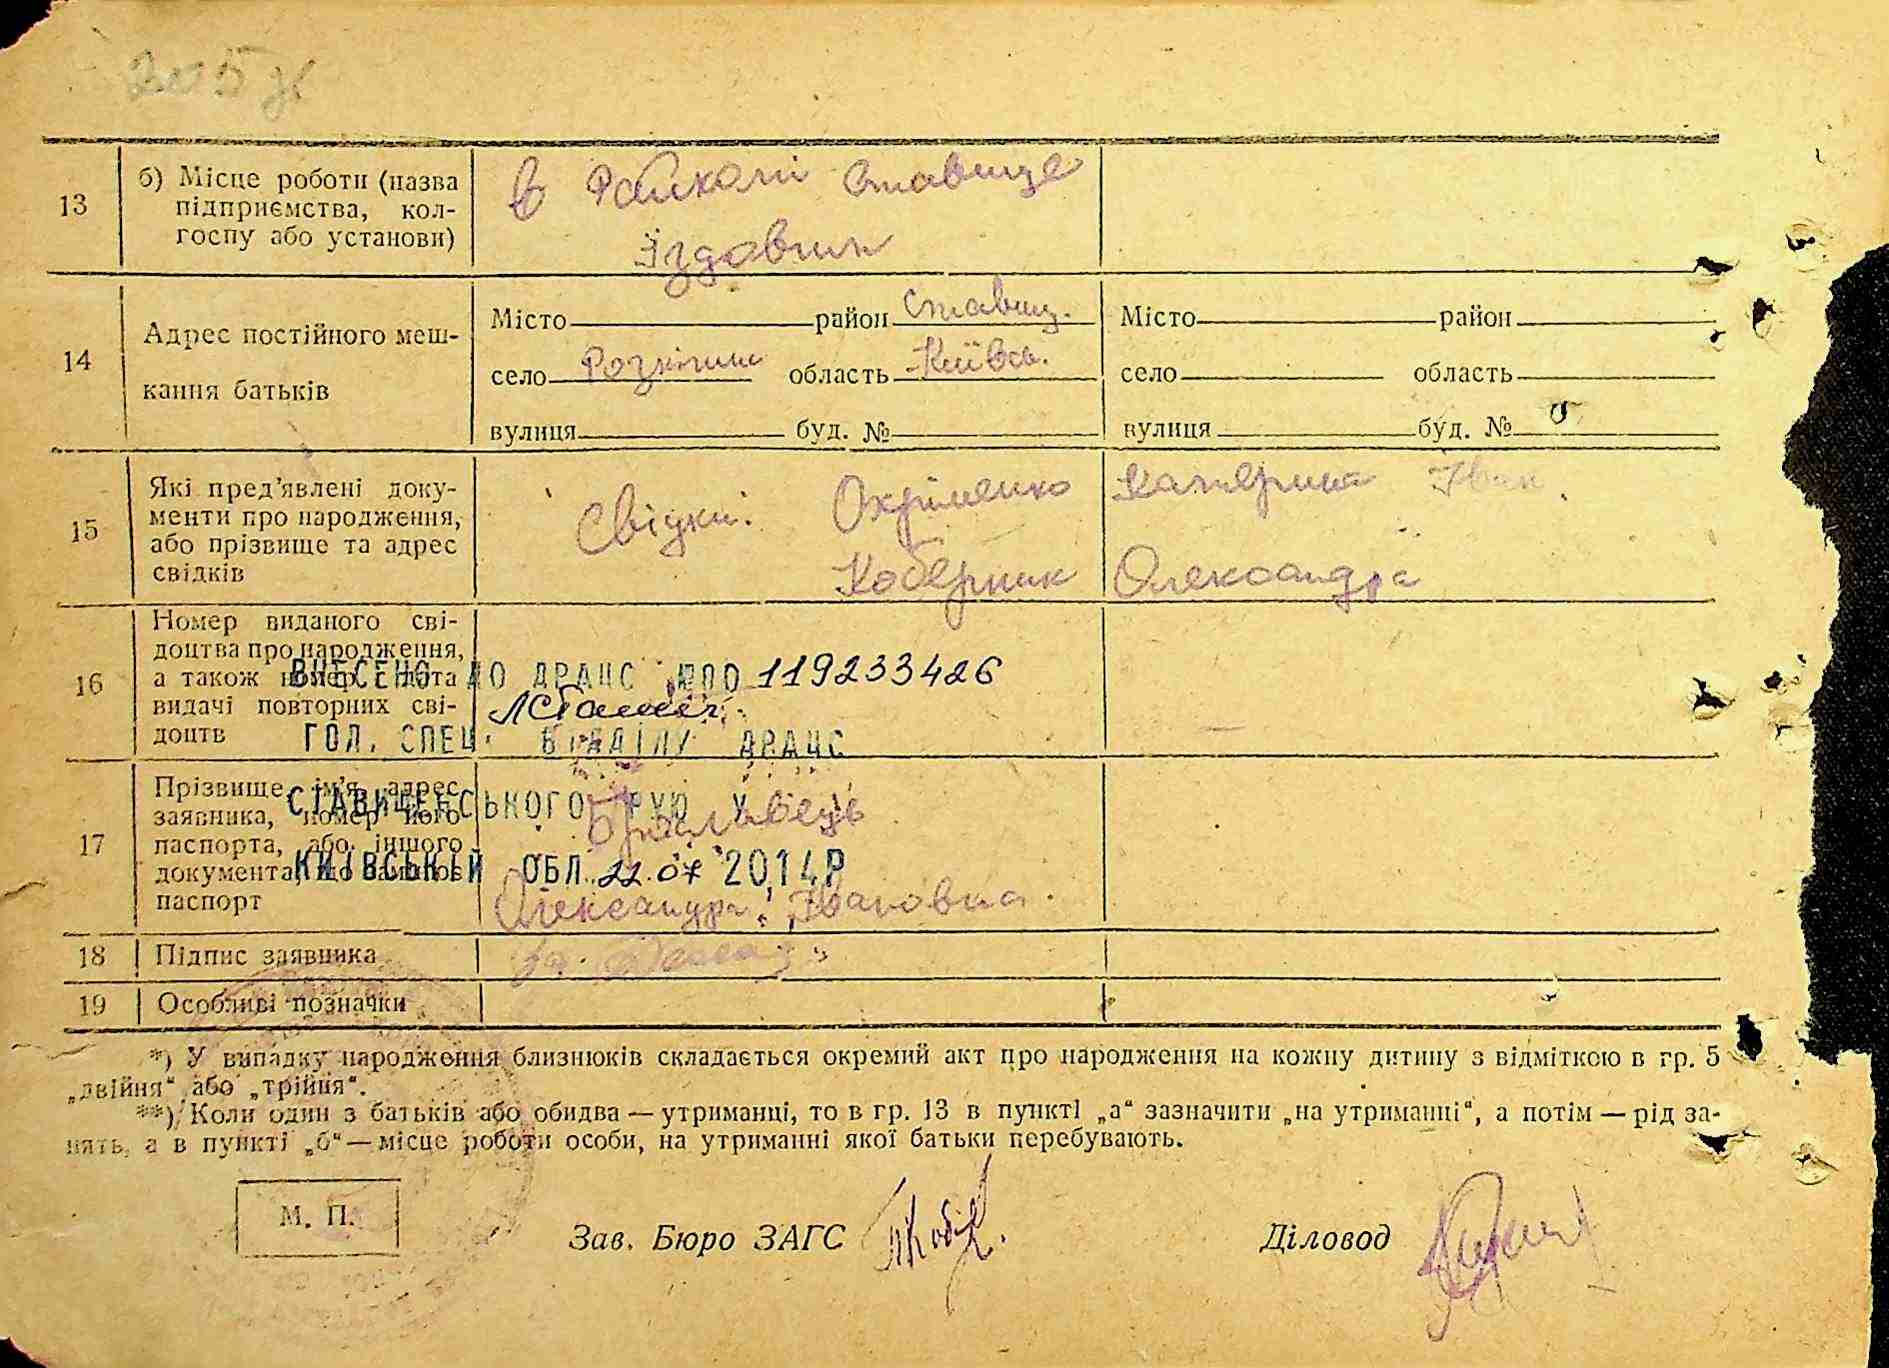 13
б) Місце роботи (назва
підприємства, кол-
госпу або установи)
в Райкомі Ставище
Їздовим
14
Адрес постійного меш-
кання батьків
Місто район Ставищ.
село Розкішна область Київсь.
вулиця буд. №
Місто район
село область
вулиця буд. №
15
Які пред'явлені доку-
менти про народження,
або прізвище та адрес
свідків
Свідки: Охріменко Катерина Іван.
Коберник Олександра
16
Номер виданого сві-
доцтва про народження,
а також номер і дата
видачі повторних сві-
доцтв
ВНЕСЕНО ДО ДРАЦС 119233426
ГОЛ. СПЕЦ. ВІДДІЛУ ДРАЦС
СТАВИЩЕНСЬКОГО РУЮ У
КИЇВСЬКІЙ ОБЛ. 22.07 2014Р
17
Прізвище, ім'я, адрес
заявника, номер його
паспорта, або іншого
документа, що заміняє
паспорт
Олександра Івановна.
18 Підпис заявника
19 Особливі позначки
*) У випадку народження близнюків складається окремий акт про народження на кожну дитину з відміткою в гр. 5
„двійня“ або „трійня“.
**) Коли один з батьків або обидва — утриманці, то в гр. 13 в пункті „а“ зазначити „на утриманці“, а потім — рід за-
нять, а в пункті „б“ — місце роботи особи, на утриманні якої батьки перебувають.
М. П.
Зав. Бюро ЗАГС
Діловод